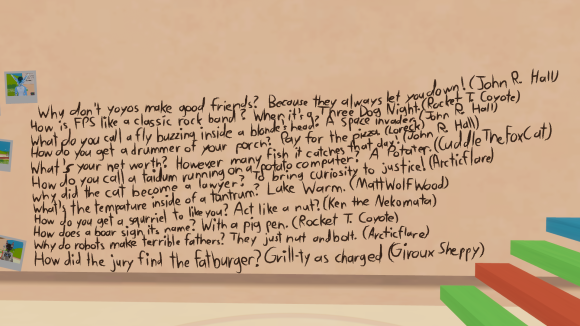 Why don't yoyos make good friends? Because they always let you down! (John R. Hall)
How is FPS like a classic rock band? When it's a Three Dog Night. (Rocket T. Coyote)
What do you call a fly buzzing inside a blonde's head? A space invader! (John R. Hall)
How do you get a drummer off your porch? Pay for the pizza (Loreck)
What's your net worth? However many fish it catches that day! (John R. Hall)
How do you call a taidum running on a potato computer? A Potater. (CuddleTheFoxCat)
Why did the cat become a lawyer? To bring curiosity to justice! (Arcticflare)
What's the tempature inside of a tantrum? Luke Warm. (MattWolfWood)
How do you get a squrriel to like you? Act like a nut? (Ken the Nekomata)
How does a boar sign its name? With a pig pen. (Rocket T. Coyote)
Why do robots make terrible fathers? They just nut and bolt. (Arcticflare)
How did the jury find the fatburger? Grill-ty as charged (Giroux Sheppy)